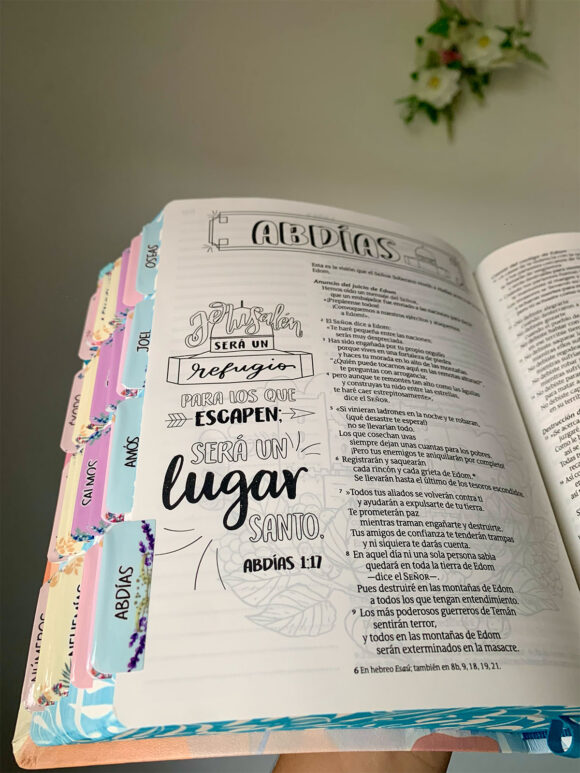 ABDÍAS
Esta es la visión que el SEÑOR Soberano reveló a
Edom.
Anuncio del juicio de Edom
Hemos oído un mensaje del SEÑOR,
que un embajador fue enviado a las naciones para decir:
«¡Prepárense todos!
¡Convoquemos a nuestros ejércitos y ataquemos
a Edom!».
2 El SEÑOR dice a Edom:
«Te haré pequeña entre las naciones;
serás muy despreciada.
3 Has sido engañada por tu propio orgullo
porque vives en una fortaleza de piedra
y haces tu morada en lo alto de las montañas.
“¿Quién puede tocarnos aquí en las remotas alturas?”
te preguntas con arrogancia;
4 pero aunque te remontes tan alto como las águilas
y construyas tu nido entre las estrellas,
te haré caer estrepitosamente»,
dice el SEÑOR.
5 «Si vinieran ladrones en la noche y te robaran,
(¡qué desastre te espera!)
no se llevarían todo.
Los que cosechan uvas
siempre dejan unas cuantas para los pobres.
¡Pero tus enemigos te aniquilarán por completo!
6 Registrarán y saquearán
cada rincón y cada grieta de Edom,*
Se llevarán hasta el último de los tesoros escondidos.
7 »Todos tus aliados se volverán contra ti
y ayudarán a expulsarte de tu tierra.
Te prometerán paz
mientras traman engañarte y destruirte.
Tus amigos de confianza te tenderán trampas
y ni siquiera te darás cuenta.
8 En aquel día ni una sola persona sabia
quedará en toda la tierra de Edom
—dice el SEÑOR—.
Pues destruiré en las montañas de Edom
a todos los que tengan entendimiento.
9 Los más poderosos guerreros de Temán
sentirán terror,
y todos en las montañas de Edom
serán exterminados en la masacre.
6 En hebreo Esaú; también en 8b, 9, 18, 19, 21.
Jerusalén
SERÁ UN
refugio
PARA LOS QUE
ESCAPEN;
SERÁ UN
lugar
SANTO.
ABDÍAS 1:17
OSEAS
JOEL
AMÓS
ABDÍAS
SALMOS
NÚMEROS